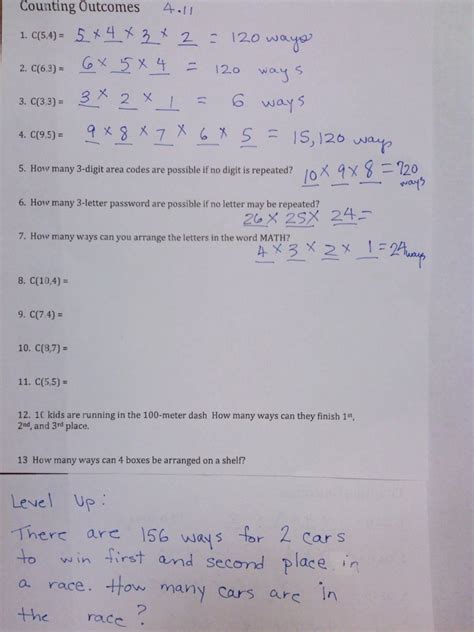 Counting Outcomes 4.11
1. C(5.4) = 5 × 4 × 3 × 2 = 120 ways
2. C(6.3) = 6 × 5 × 4 = 120 ways
3. C(3.3) = 3 × 2 × 1 = 6 ways
4. C(9.5) = 9 × 8 × 7 × 6 × 5 = 15,120 ways
5. How many 3-digit area codes are possible if no digit is repeated? 10 × 9 × 8 = 720 ways
6. How many 3-letter password are possible if no letter may be repeated?
26 × 25 × 24 =
7. How many ways can you arrange the letters in the word MATH?
4 × 3 × 2 × 1 = 24 ways
8. C(10,4) =
9. C(7.4) =
10. C(8,7) =
11. C(5,5) =
12. 10 kids are running in the 100-meter dash How many ways can they finish 1st,
2nd, and 3rd place.
13 How many ways can 4 boxes be arranged on a shelf?
Level Up:
There are 156 ways for 2 cars
to win first and second place in
a race. How many cars are in
the race?